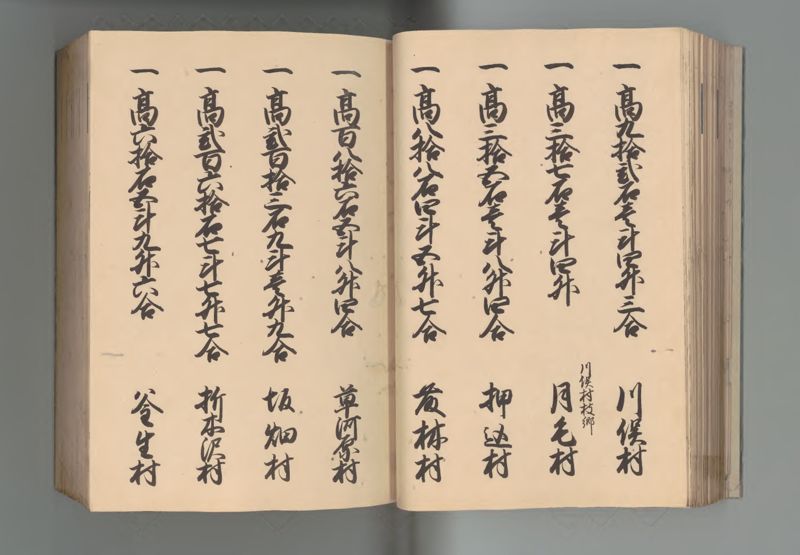 一 高九拾弐石壱斗四升三合 川俣村
一 高三拾七石壱斗四升 川俣村枝郷 月毛村
一 高三拾五石壱斗八升四合 押込村
一 高八拾八石四斗五升七合 荻林村
一 高百八拾六石五斗八升四合 草河原村
一 高弐百拾三石九斗壱升九合 坂畑村
一 高弐百六拾石七斗七升七合 折木沢村
一 高六拾石五斗九升六合 釜生村